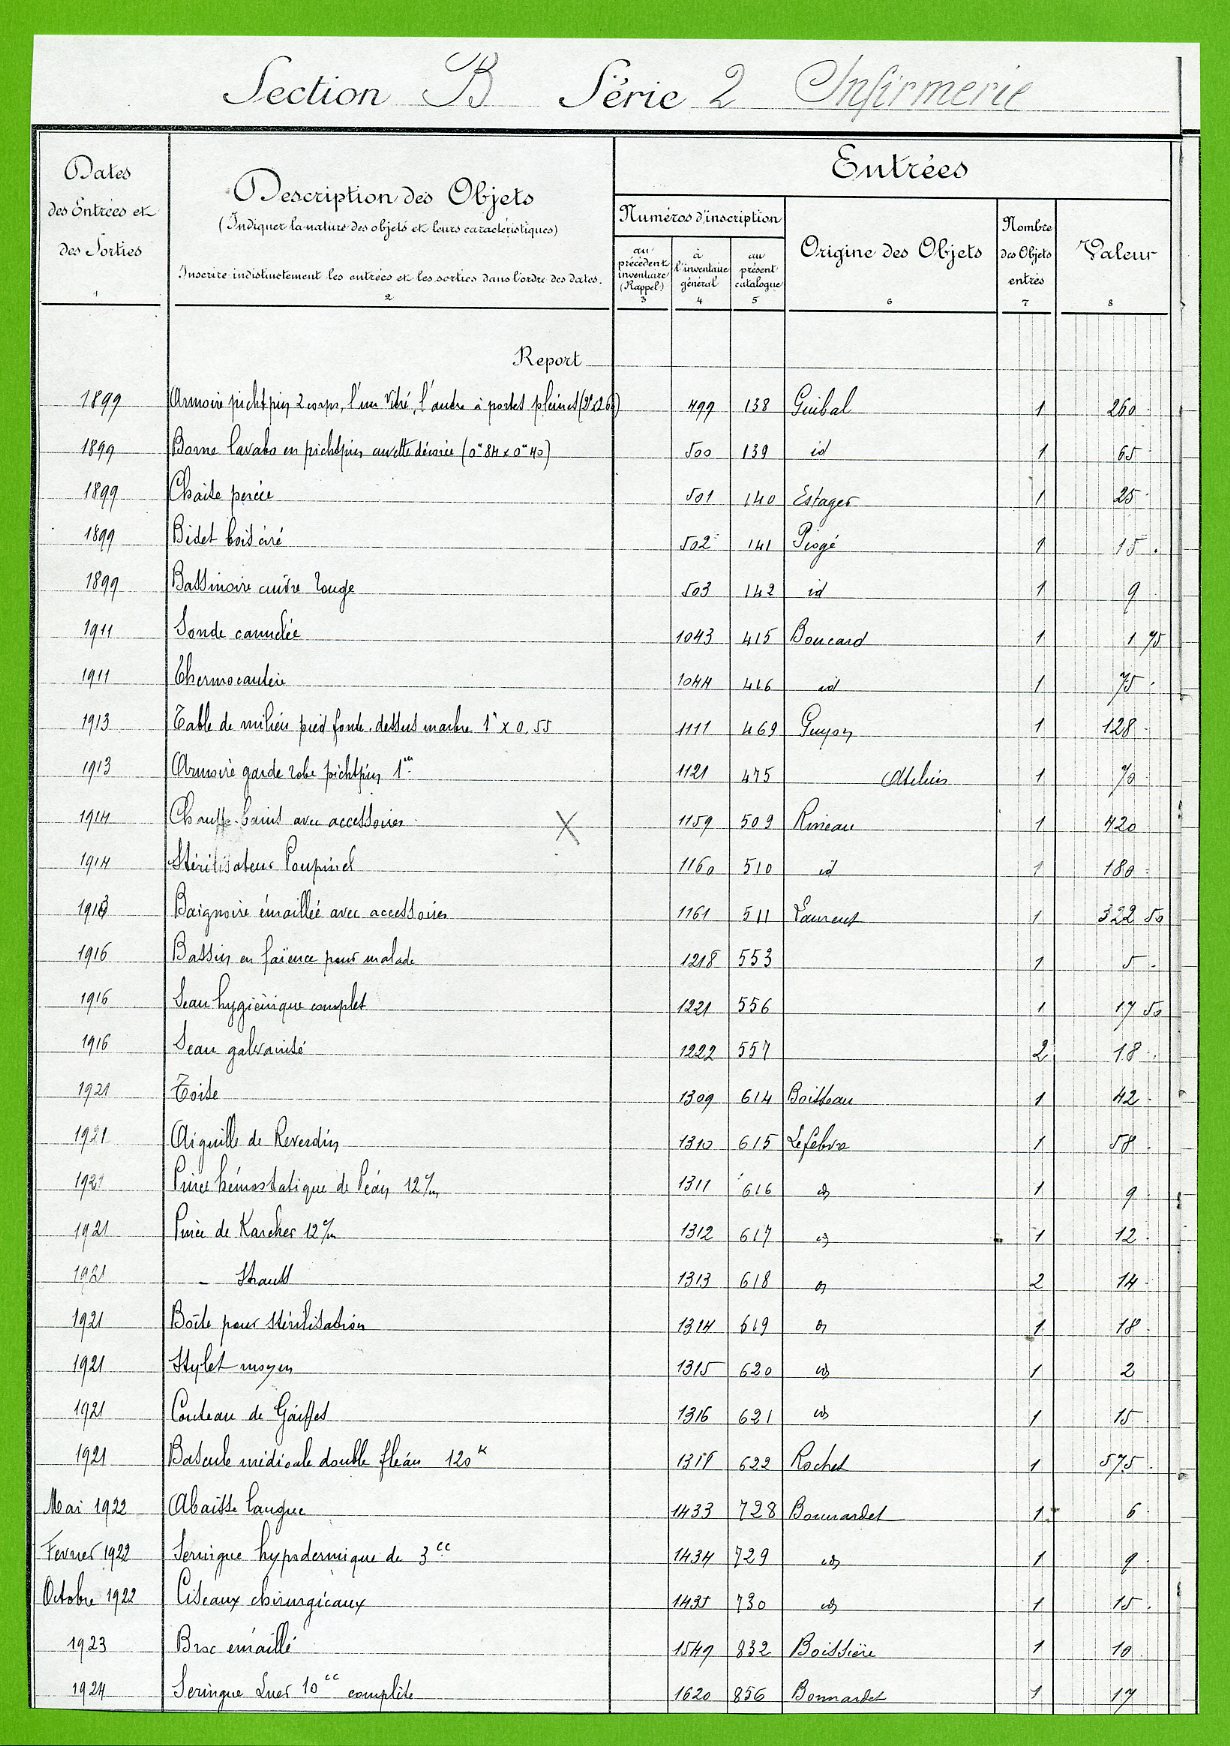 Section B Série 2 Infirmerie
Dates des Entrées et des Sorties
1
Description des Objets
(Indiquer la nature des objets et leurs caractéristiques)
Inscrire indistinctement les entrées et les sorties dans l'ordre des dates.
2
Entrées
Numéros d'inscription
au précédent inventaire (Rappel)
3
à l'inventaire général
4
au présent catalogue
5
Origine des Objets
6
Nombre des Objets entrés
7
Valeur
8
Report
1899 Armoire pichtpin 2 corps, l'un vitré, l'autre à portes pleines 499 138 Guibal 1 260
1899 Borne lavabo en pichtpin cuvette décorée (0m84 x 0m40) 500 139 id 1 65
1899 Chaise percée 501 140 Estager 1 25
1899 Bidet bois ciré 502 141 Piogé 1 15
1899 Bassinoire cuivre rouge 503 142 id 1 9
1911 Sonde cannelée 1043 415 Boucard 1 1 75
1911 Thermocautère 1044 416 id 1 75
1913 Table de milieu pied fonte, dessus marbre 1m x 0.55 1111 469 Guyon 1 128
1913 Armoire garde robe pichtpin 1m 1121 475 Ateliers 1 70
1914 Chauffe-bains avec accessoires X 1159 509 Rineau 1 420
1914 Stérilisateur Poupinel 1160 510 id 1 180
1913 Baignoire émaillée avec accessoires 1161 511 Laurent 1 322 50
1916 Bassin en faïence pour malade 1218 553 1 5
1916 Seau hygiénique complet 1221 556 1 17 50
1916 Seau galvanisé 1222 557 2 18
1921 Toise 1309 614 Boisseau 1 42
1921 Aiguille de Reverdin 1310 615 Lefebvre 1 58
1921 Pince hémostatique de Péan 12 c/m 1311 616 id 1 9
1921 Pince de Karcher 12 c/m 1312 617 id 1 12
1921 – 1313 618 id 2 14
1921 Boîte pour stérilisation 1314 619 id 1 18
1921 Stylet moyen 1315 620 id 1 2
1921 Couteau de 1316 621 id 1 15
1921 Bascule médicale double fléau 120k 622 Rochet 1 575
Mai 1922 Abaisse langue 1433 728 Bonnardet 1 6
Fevrier 1922 Seringue hypodermique de 3cc 1434 729 id 1 9
Octobre 1922 Ciseaux chirurgicaux 1435 730 id 1 15
1923 Broc émaillé 1549 832 Boissière 1 10
1924 Seringue Luer 10cc complète 1620 856 Bonnardet 1 17